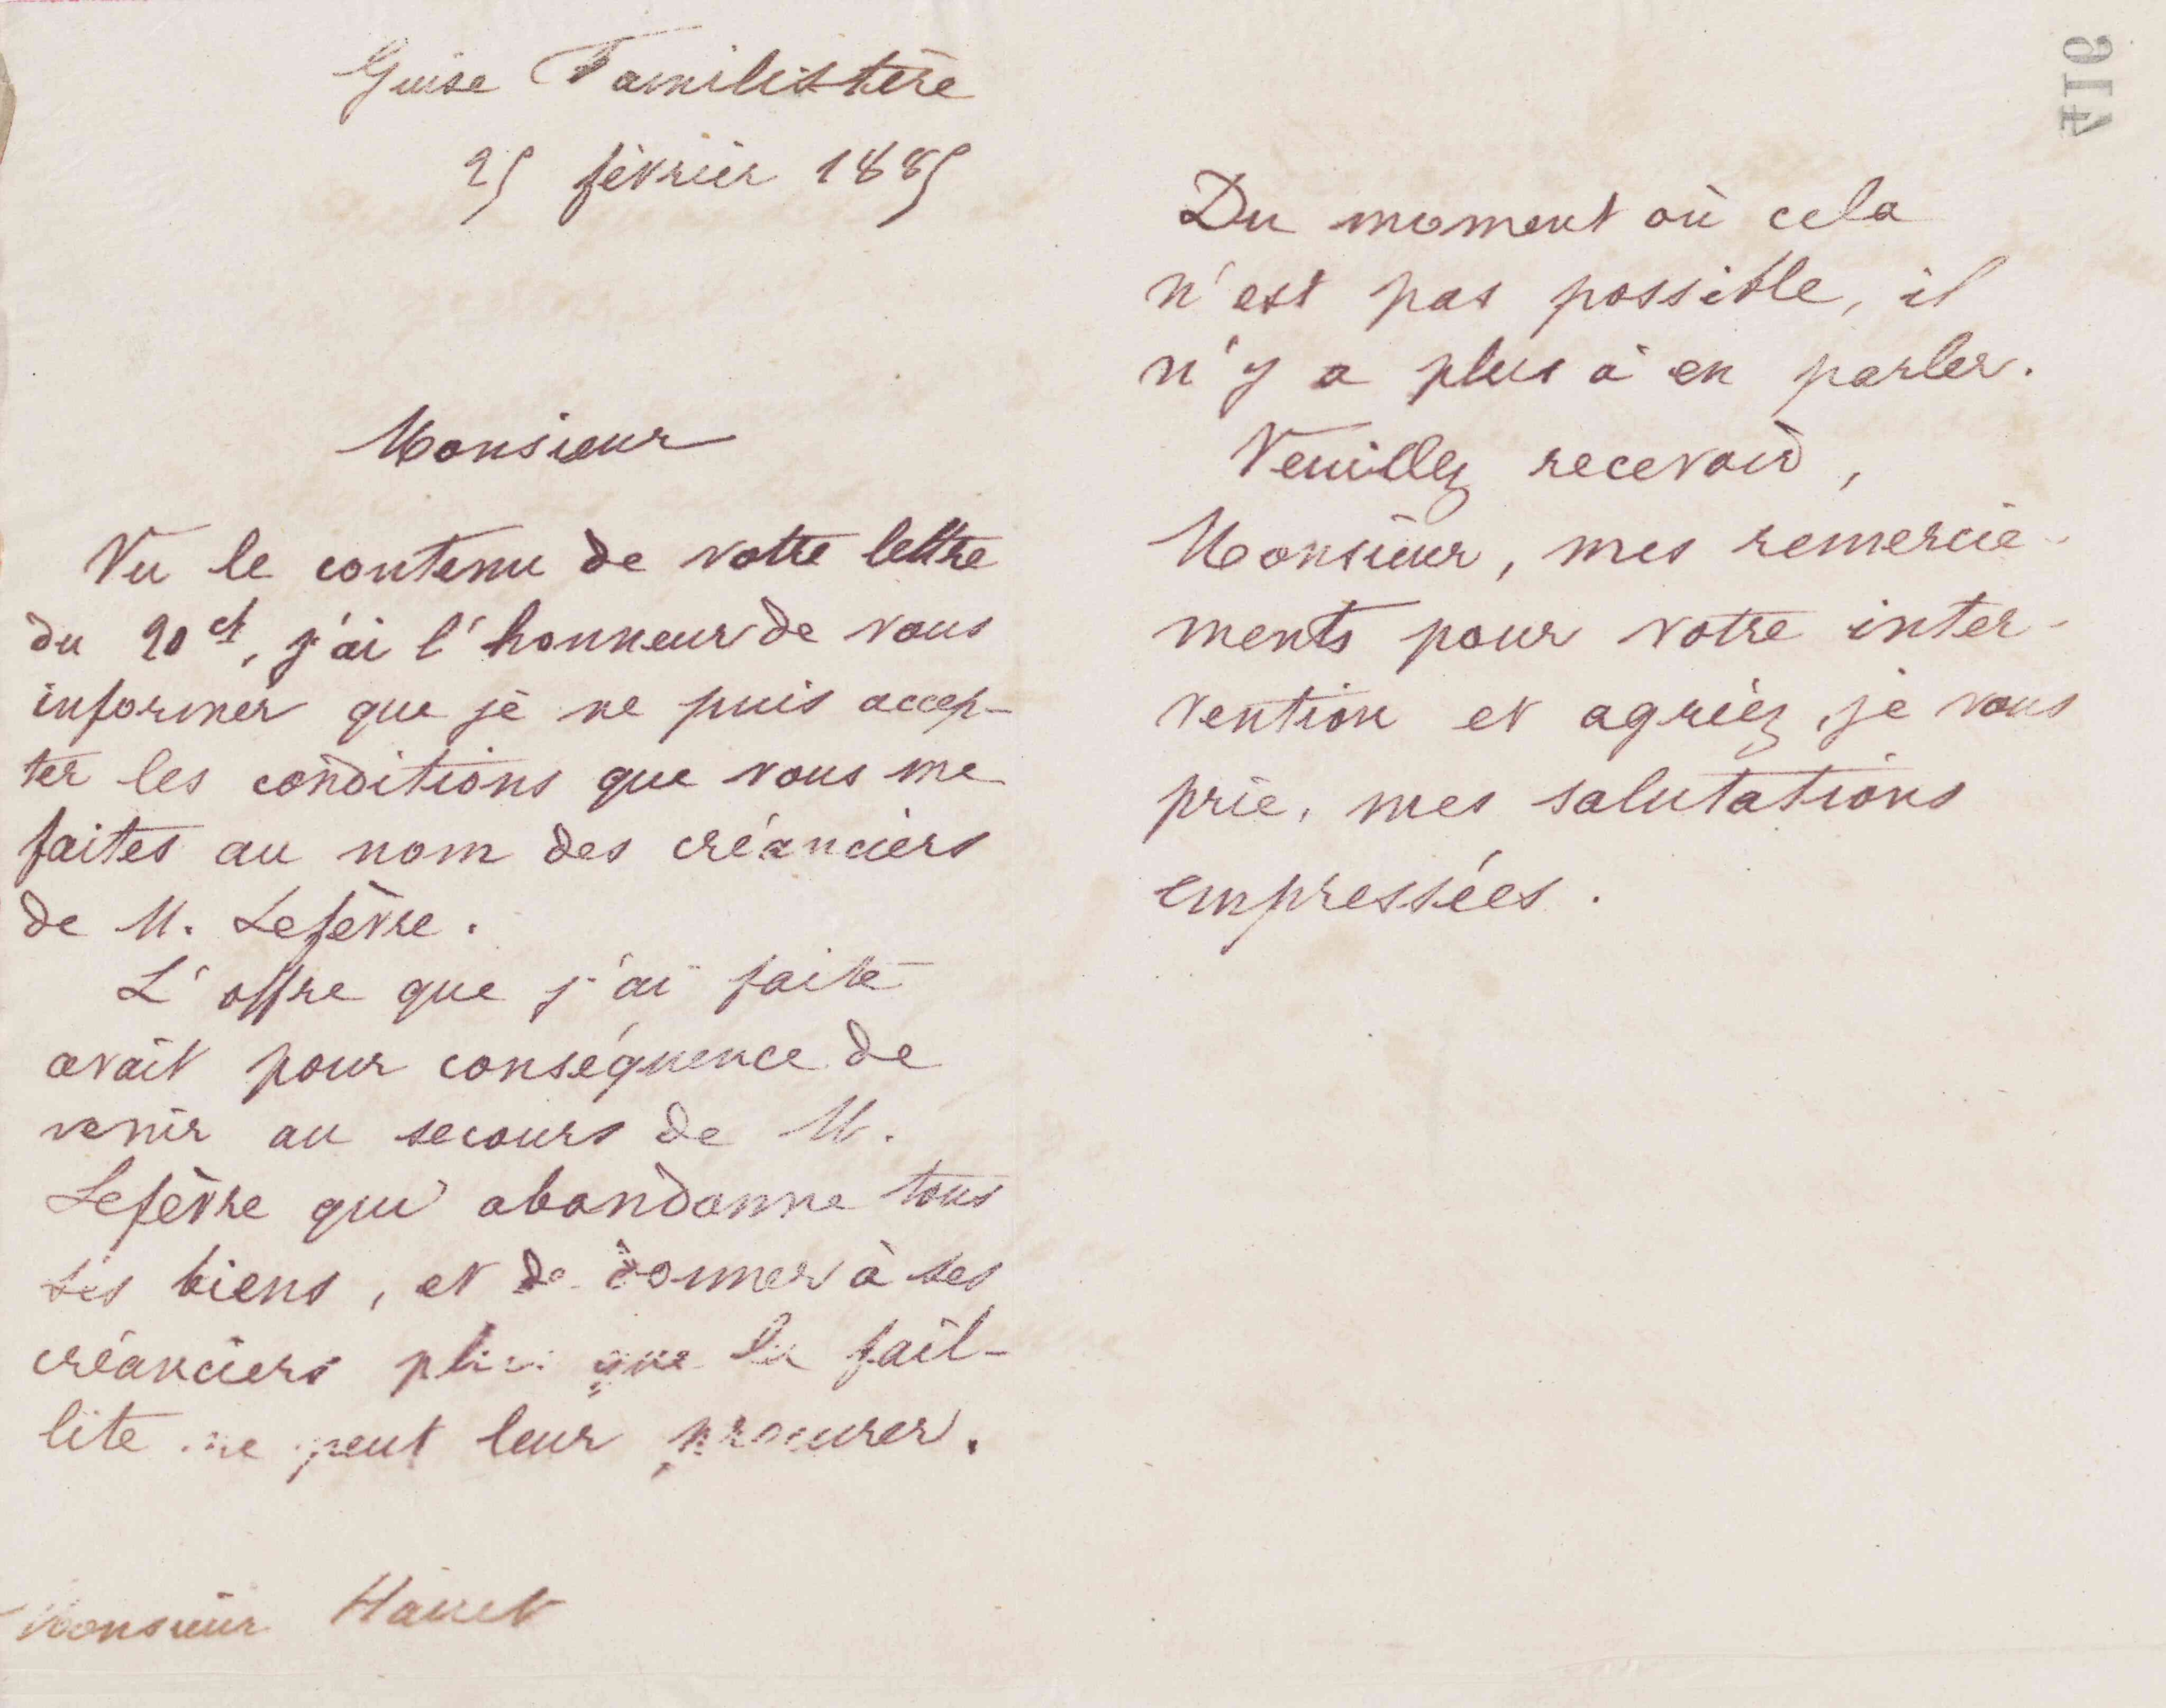 Guise Familistère
25 février 1885
Monsieur
Vu le contenu de votre lettre
du 20 ct, j'ai l'honneur de vous
informer que je ne puis accep-
ter les conditions que vous me
faites au nom des créanciers
de M. Lefèvre.
L'offre que j'ai faite
avait pour conséquence de
venir au secours de M.
Lefèvre qui abandonne tous
ses biens, et de donner à ses
créanciers plus que la fail-
lite ne peut leur procurer.
Monsieur
416
Du moment où cela
n'est pas possible, il
n'y a plus à en parler.
Veuillez recevoir,
Monsieur, mes remercie-
ments pour votre inter-
vention et agréez, je vous
prie, mes salutations
empressées.